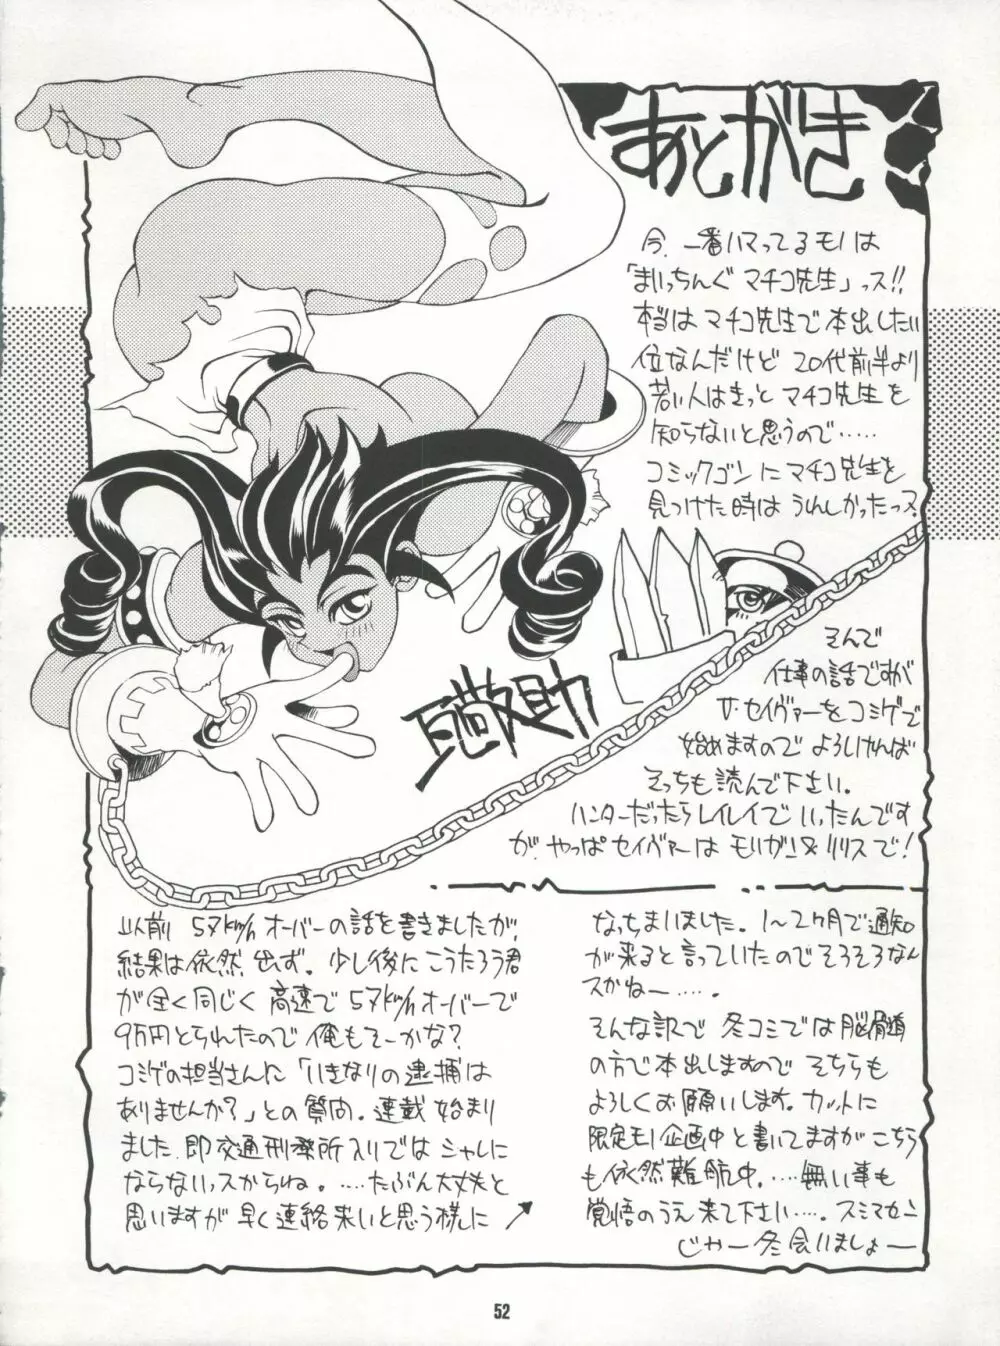 あとがき
今、一番ハマってるモノは
「まいっちんぐ マチコ先生」っス!!
本当は マチコ先生で 本出したい
位なんだけど 20代前半より
若い人はきっと マチコ先生を
知らないと思うので……
コミックゴン に マチコ先生を
見つけた時は うれしかったっス
そんで
仕事の話ですが
V・セイヴァーをコミゲで
始めますので よろしければ
そっちも 読んで下さい。
ハンターだったら レイレイで いったんです
が、やっぱ セイヴァーは モリガン&リリスで!
以前 57km/h オーバーの話を書きましたが、
結果は依然 出ず。少し後に こうたろう君
が 全く同じく 高速で 57km/hオーバーで
9万円とられたので 俺もそーかな?
コミゲの担当さんに「いきなりの逮捕は
ありませんか?」との質問。連載 始まり
ました、即交通刑務所入りでは シャレに
ならないっスからね。……たぶん大丈夫と
思いますが 早く連絡来いと思う様に
なっちまいました。1〜2ヶ月で通知
が来ると言っていたので そろそろなん
スかねー……。
そんな訳で 冬コミでは 脳髄
の方で本出しますので そちらも
よろしくお願いします。カットに
限定モノ企画中と書いてますが こちら
も 依然難航中。……無い事も
覚悟のうえ 来て下さい……。スミマセン
じゃー 冬会いましょー
52